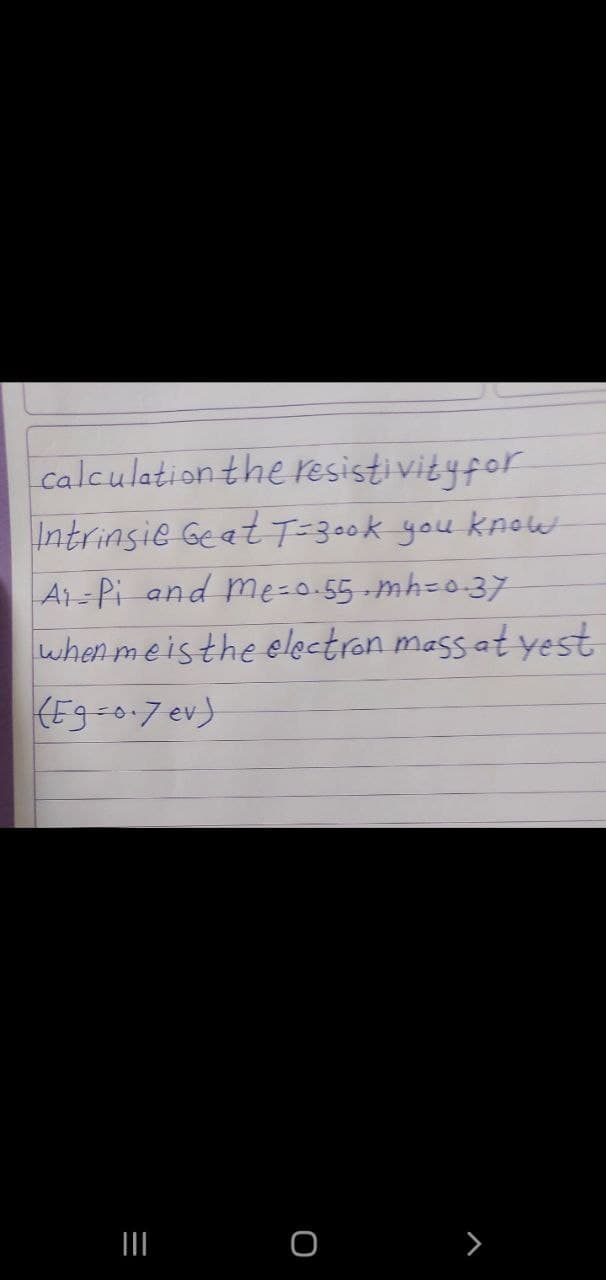 calculation the resistivity for
Intrinsie Ge at T=300k you know
Ai=Pi and me=0.55.mh=0.37
when me is the electron mass at yest
(Eg=0.7 ev)